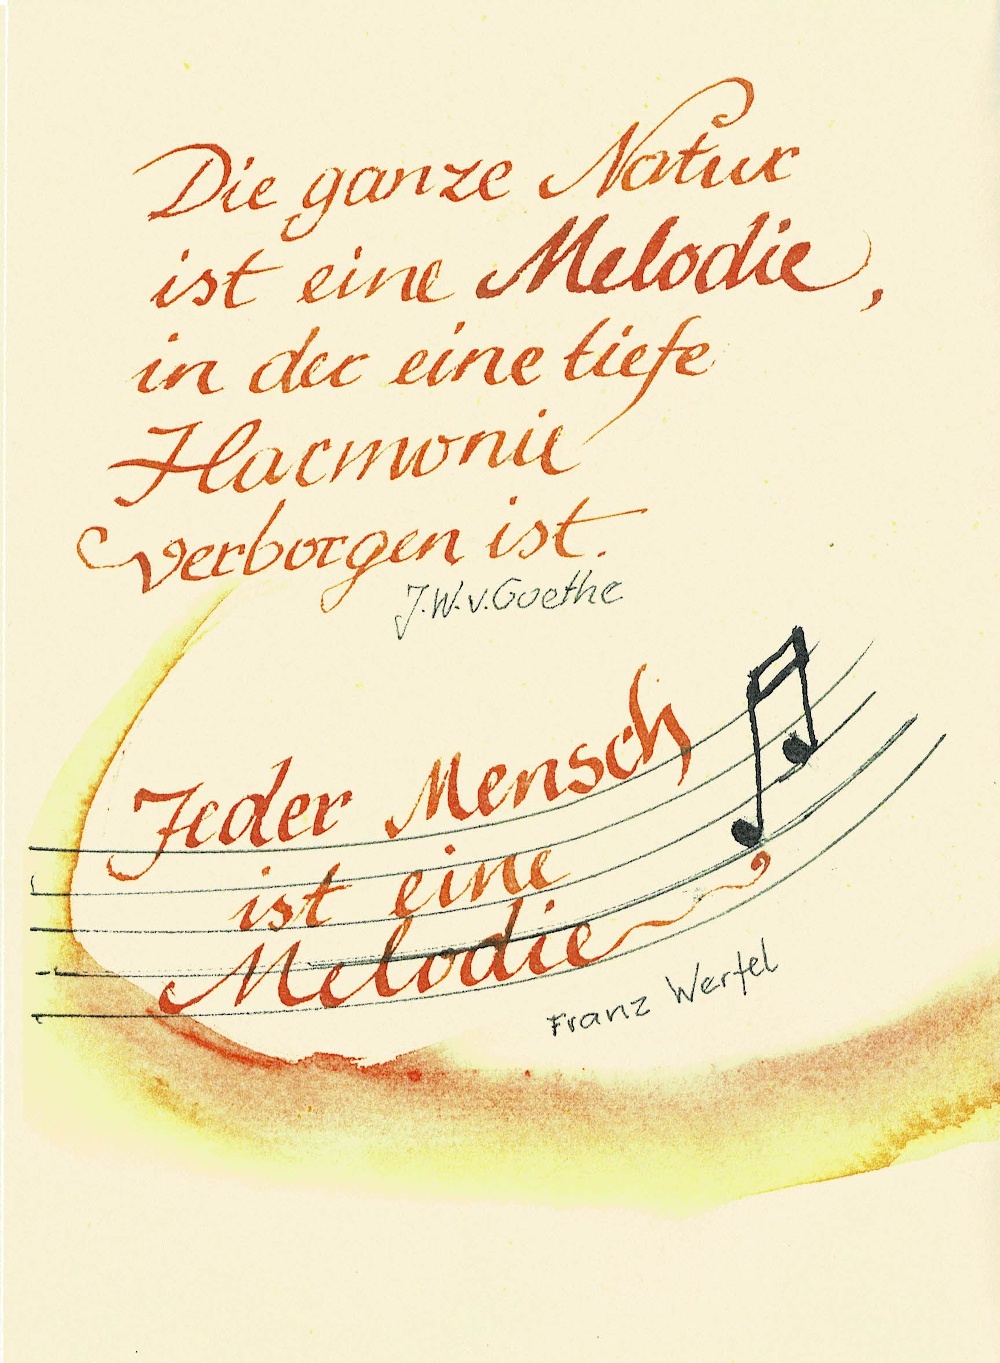 Die ganze Natur
ist eine Melodie,
in der eine tiefe
Harmonie
verborgen ist.
J.W.v.Goethe
Jeder Mensch
ist eine
Melodie
Franz Werfel